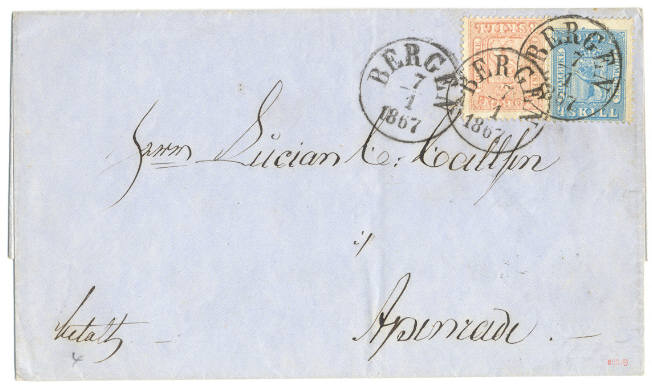 BERGEN
7
1
1867
BERGEN
7
1
1867
BERGEN
7
1
1867
SKILL
Herrn Lucian C. Callsen
Apenrade.
betalt
4